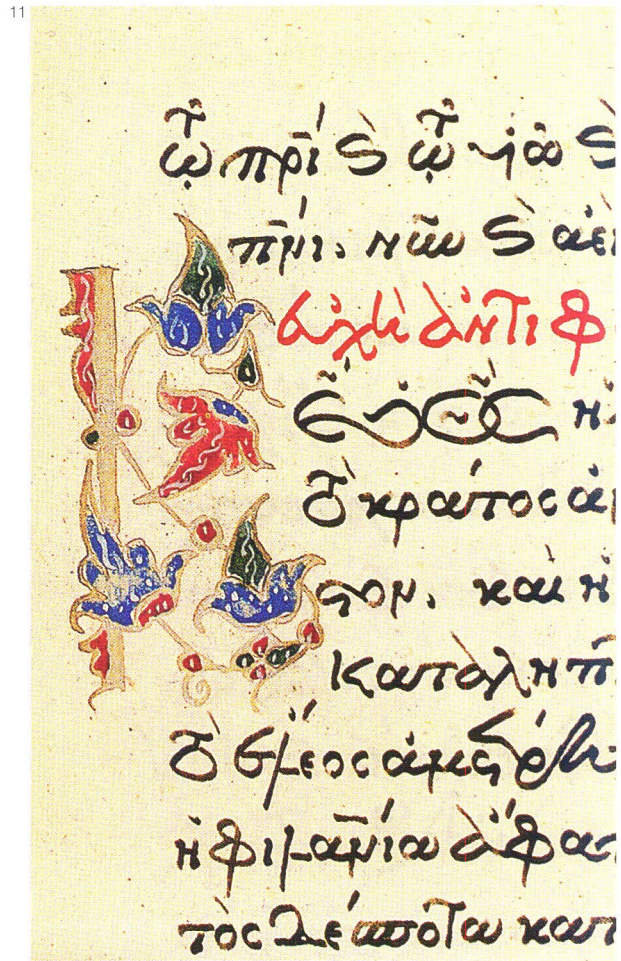 11
τῷ πρὶ ϗ τῷ υἱῷ ϗ
πνι. νῦν ϗ ἀεὶ
εὐχὴ ἀντιφ
ὁ θεὸς ἡ
τὸ κράτος ἀν
στον. καὶ ἡ
καταληπ
τὸ ἔλεος ἀμέτρη
ἡ φιλανία ἄφα
τὸς Δέσποτα κατ